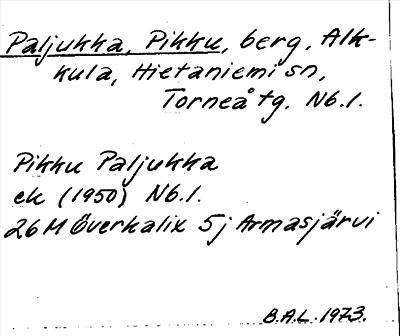 Paljukka, Pikku, berg, Alk-
kula, Hietaniemi sn,
Torneå tg. Nb.l.
Pikku Paljukka
ek (1950) Nb.l.
26M Överkalix 5j Armasjärvi
B.A.L. 1973.